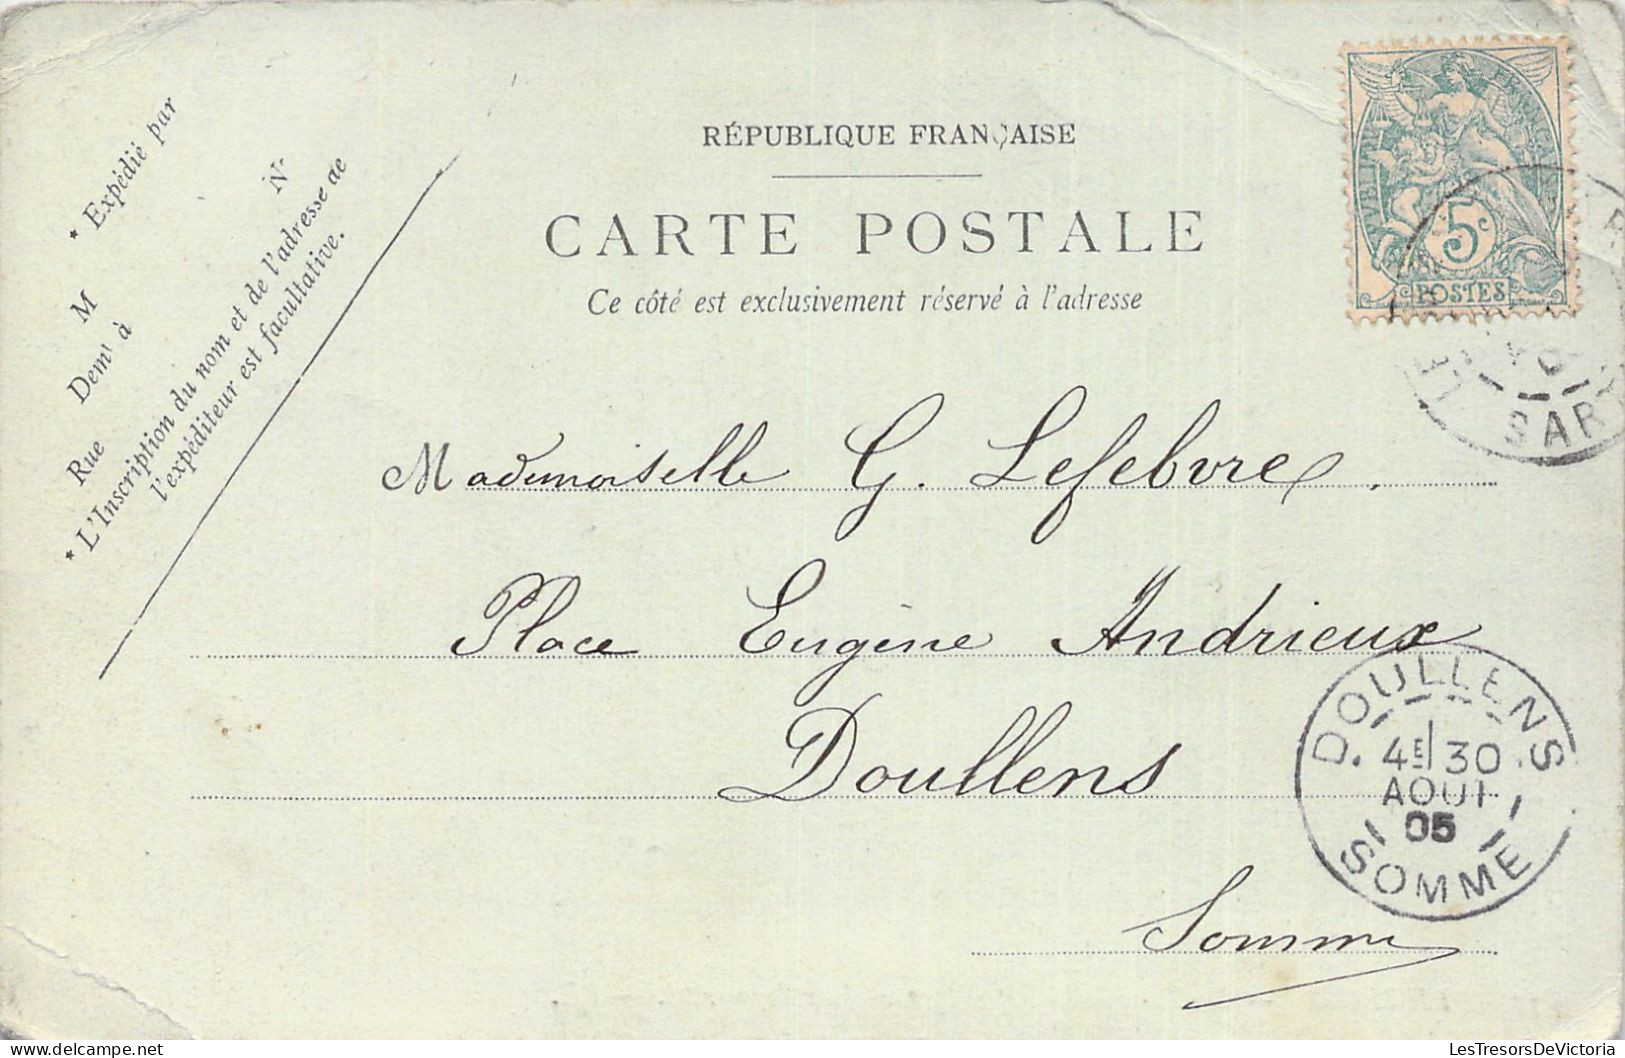 RÉPUBLIQUE FRANÇAISE
CARTE POSTALE
Ce côté est exclusivement réservé à l'adresse
* Expédié par
M
Demt à
Rue
N°
* L'Inscription du nom et de l'adresse de
l'expéditeur est facultative.
5c
POSTES
SAR
Mademoiselle G. Lefebvre.
Place Eugène Andrieux
Doullens
Somme
DOULLENS
4E 30
AOUT
05
SOMME
LesTresorsDeVictoria
www.delcampe.net